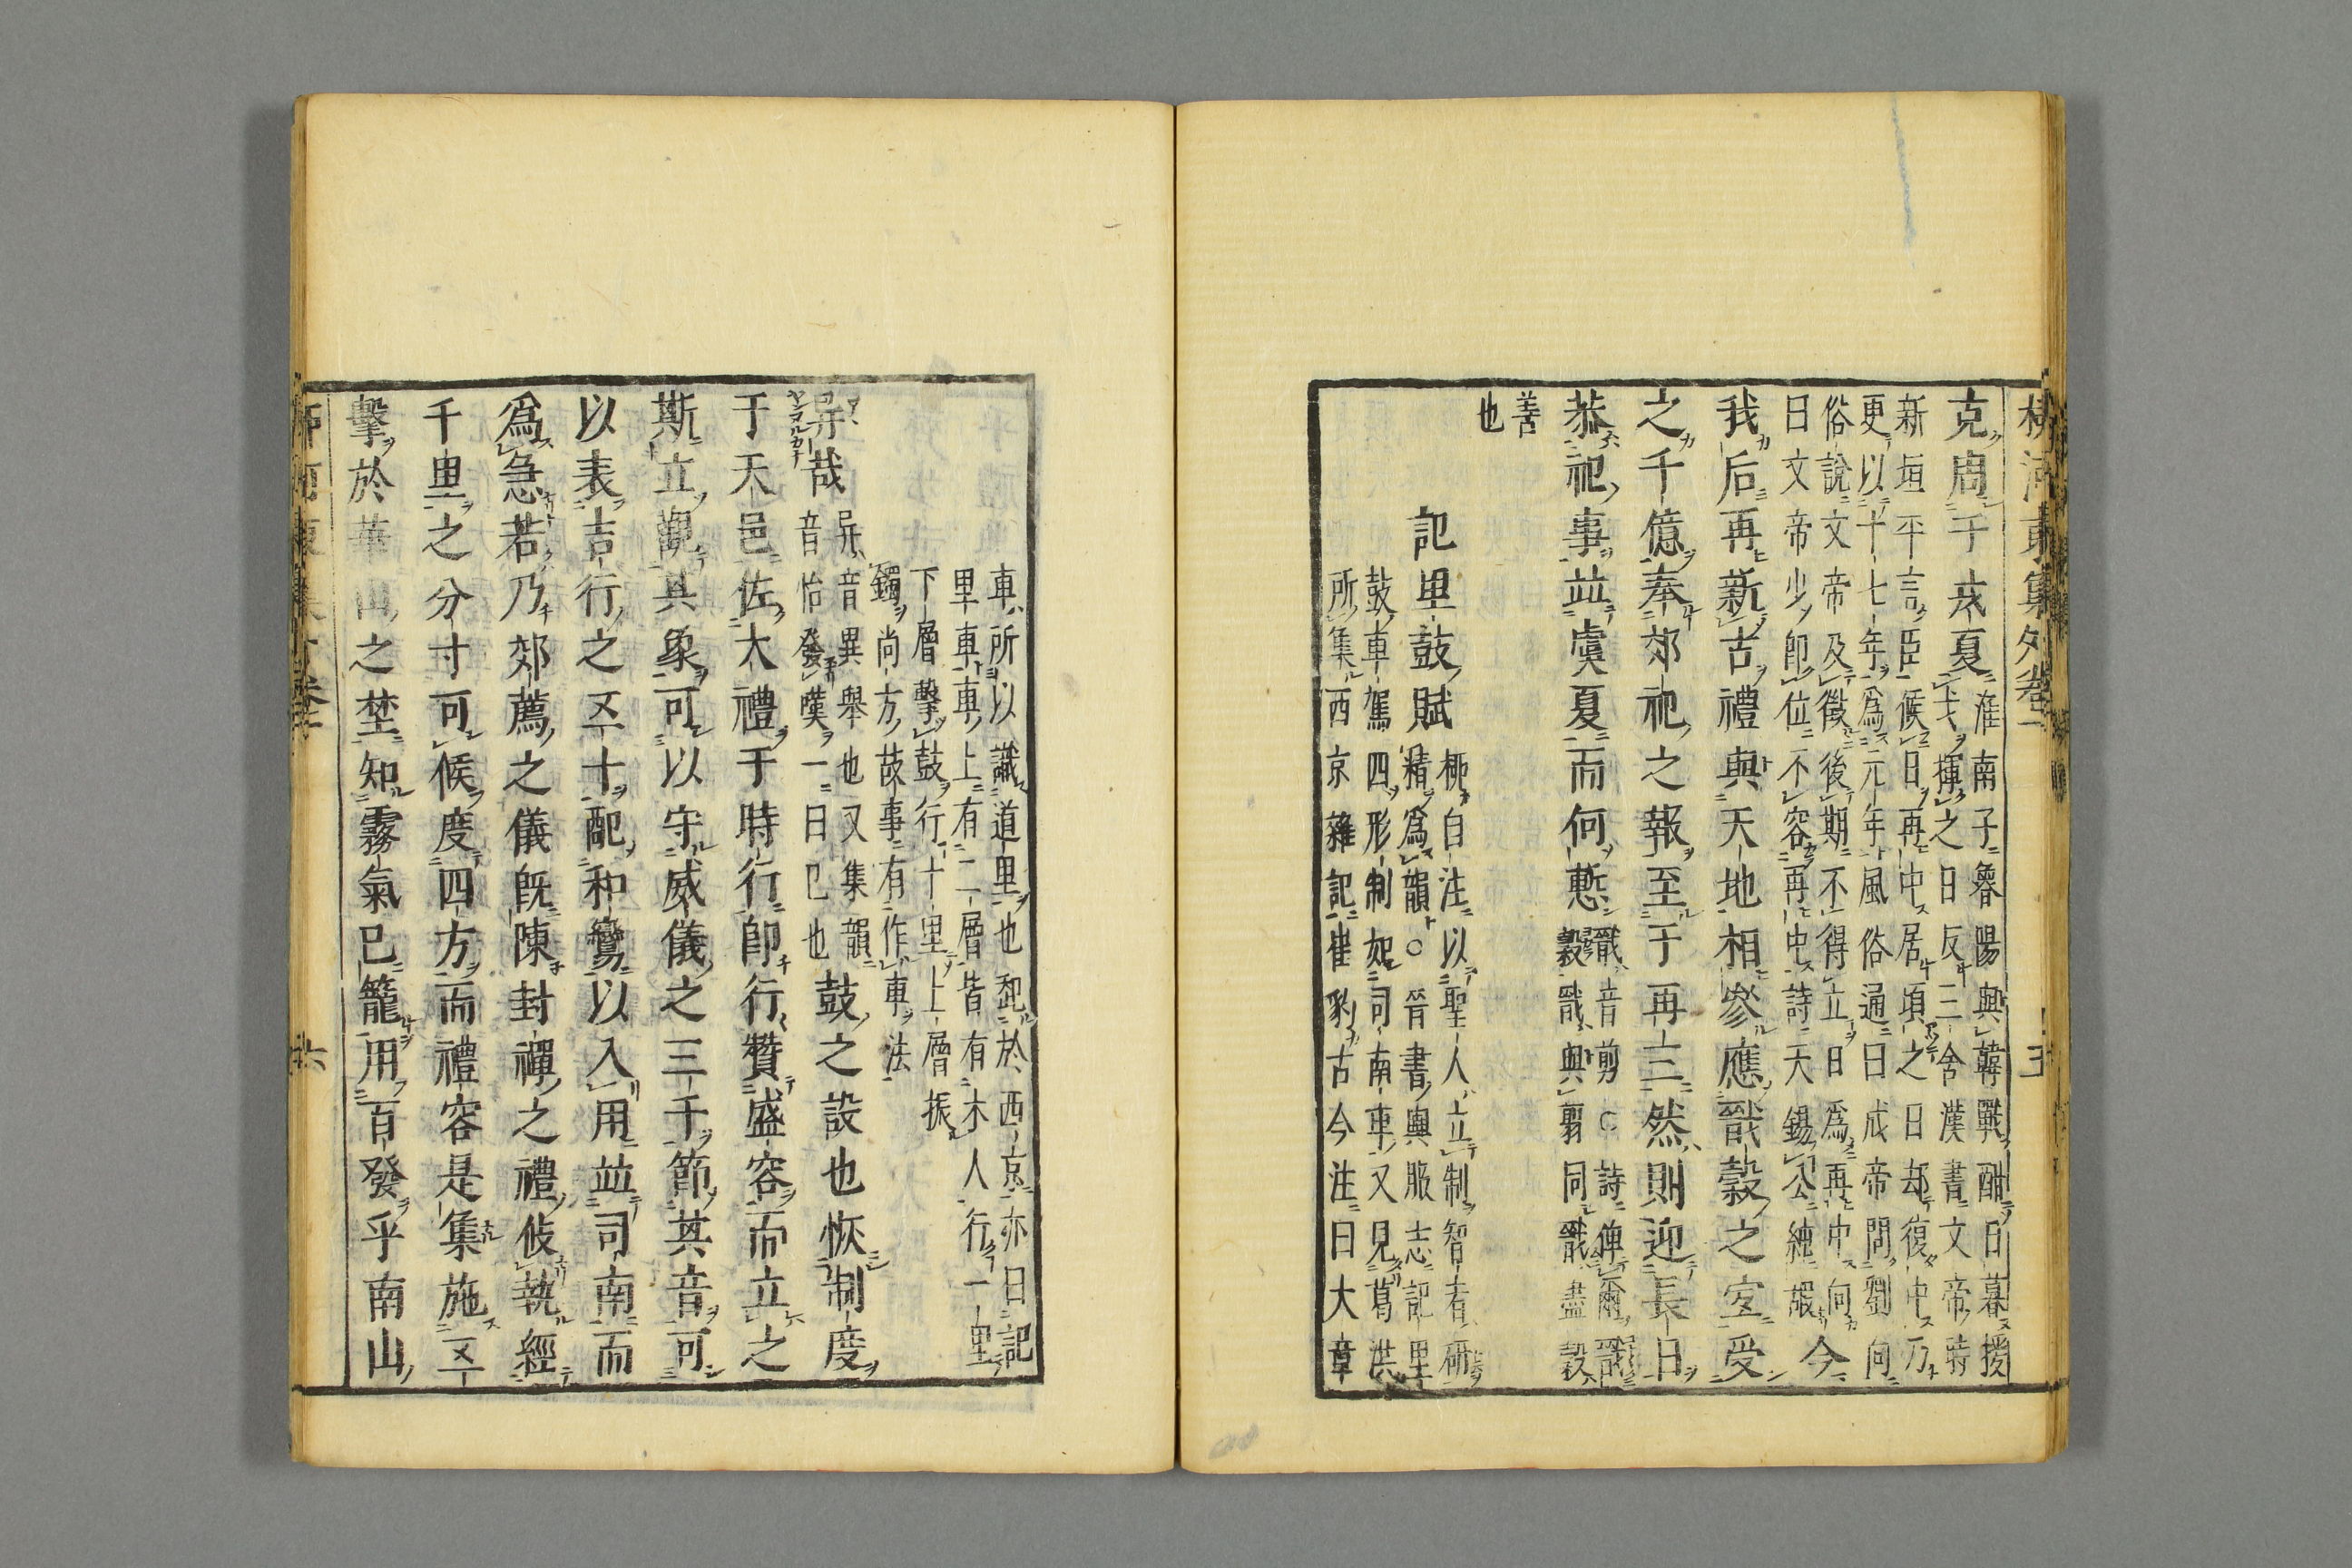 柳河東集外卷一 五
克周于戎夏
淮南子魯陽與韓戰酣日暮援
戈揮之日反三舍漢書文帝時
新垣平言臣候日再中居頃之日却復中乃
更以十七年爲元年風俗通曰成帝問劉向
俗說文帝及徵後期不得立日爲再中何
曰文帝少卽位不容再中詩天錫公純嘏
今
我后再新古禮與天地相參應戩穀之宜受
之千億奉郊祀之報至于再三然則迎長日
恭祀事並虞夏而何慙
戩音剪○詩俾爾戩
穀戩與翦同戩盡穀
善
也
記里鼓賦
柳自注以聖人立制智者研
精爲韻○晉書輿服志記里
鼓車駕四形制如司南車又見葛洪
所集西京雜記崔豹古今注曰大章
車所以識道里也起於西京亦曰記
里車車上有二層皆有木人行一里
下層擊鼓行十里上層振
鐲尚方故事有作車法
异哉
异音異舉也又集韻
音怡發嘆一曰已也
鼓之設也恢制度
于天邑佐大禮于時行卽行贊盛容而立之
斯立觀其象可以守威儀之三千節其音可
以表吉行之五十配和鸞以入用並司南而
爲急若乃郊薦之儀既陳封禪之禮攸執經
千里之分寸可候度四方而禮容是集施五
擊於華山之埜知霧氣已籠用百發乎南山